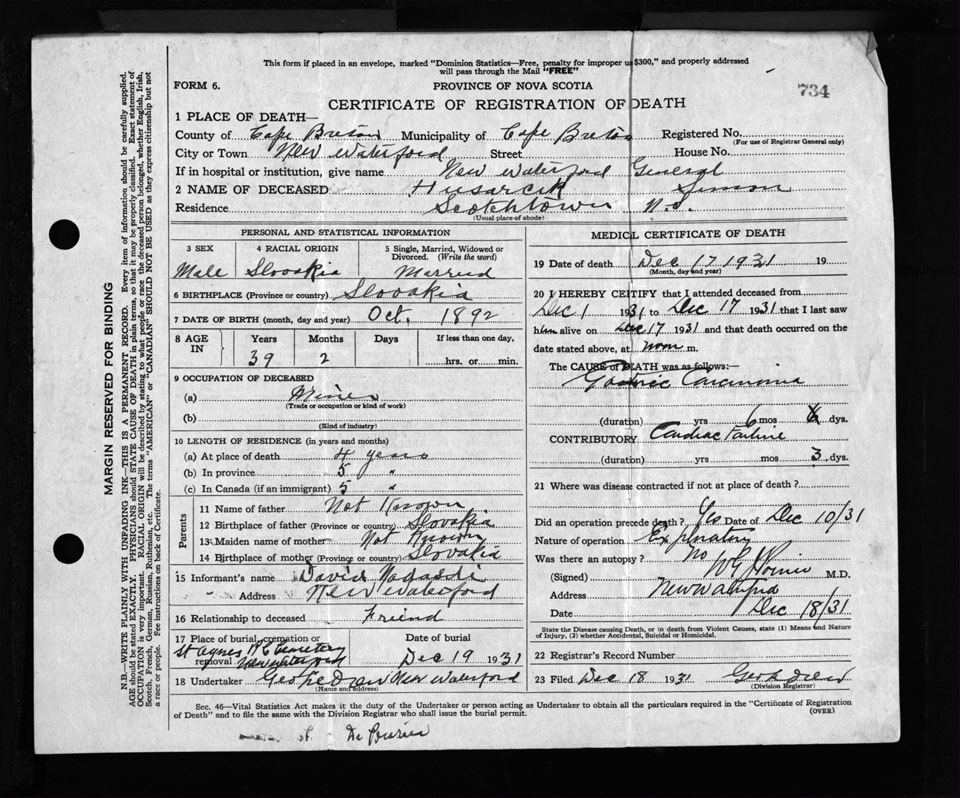 This form if placed in an envelope, marked "Dominion Statistics—Free, penalty for improper us $300," and properly addressed
will pass through the Mail "FREE"
FORM 6.
PROVINCE OF NOVA SCOTIA
734
CERTIFICATE OF REGISTRATION OF DEATH
1 PLACE OF DEATH—
County of Cape Breton Municipality of Cape Breton Registered No.
(For use of Registrar General only)
City or Town New Waterford Street House No.
If in hospital or institution, give name New Waterford General
2 NAME OF DECEASED Husarcik Simon
Residence Scotchtown N.S.
(Usual place of abode)
PERSONAL AND STATISTICAL INFORMATION
3 SEX 4 RACIAL ORIGIN 5 Single, Married, Widowed or Divorced. (Write the word)
Male Slovakia Married
6 BIRTHPLACE (Province or country) Slovakia
7 DATE OF BIRTH (month, day and year) Oct. 1892
8 AGE IN Years Months Days If less than one day,
39 2 hrs. or min.
9 OCCUPATION OF DECEASED
(a) Miner
(Trade or occupation or kind of work)
(b)
(Kind of industry)
10 LENGTH OF RESIDENCE (in years and months)
(a) At place of death 4 years
(b) In province 5 "
(c) In Canada (if an immigrant) 5 "
Parents
11 Name of father Not Known
12 Birthplace of father (Province or country) Slovakia
13 Maiden name of mother Not Known
14 Birthplace of mother (Province or country) Slovakia
15 Informant's name David
Address New Waterford
16 Relationship to deceased Friend
17 Place of burial, cremation or removal Date of burial
St Agnes R C Cemetery
New Waterford Dec 19 1931
18 Undertaker Geo New Waterford
(Name and address)
MEDICAL CERTIFICATE OF DEATH
19 Date of death Dec 17 1931 19
(Month, day and year)
20 I HEREBY CEITIFY that I attended deceased from
Dec 1 1931 to Dec 17 1931 that I last saw
him alive on Dec 17 1931 and that death occurred on the
date stated above, at noon m.
The CAUSE of DEATH was as follows:—
Gastric Carcinoma
(duration) yrs 6 mos dys.
CONTRIBUTORY Cardiac Failure
(duration) yrs mos 3 dys.
21 Where was disease contracted if not at place of death?
Did an operation precede death? Yes Date of Dec 10/31
Nature of operation Exploratory
Was there an autopsy? No
(Signed) M.D.
Address New Waterford
Date Dec 18/31
State the Disease causing Death, or in death from Violent Causes, state (1) Means and Nature
of Injury, (2) whether Accidental, Suicidal or Homicidal.
22 Registrar's Record Number
23 Filed Dec 18 1931
(Division Registrar)
Sec. 46—Vital Statistics Act makes it the duty of the Undertaker or person acting as Undertaker to obtain all the particulars required in the "Certificate of Registration
of Death" and to file the same with the Division Registrar who shall issue the burial permit.
(OVER)
MARGIN RESERVED FOR BINDING
N.B.—WRITE PLAINLY WITH UNFADING INK—THIS IS A PERMANENT RECORD. Every item of information should be carefully supplied.
AGE should be stated EXACTLY. PHYSICIANS should STATE CAUSE OF DEATH in plain terms, so that it may be properly classified. Exact statement of
OCCUPATION is very important. RACIAL ORIGIN will be described by stating to what people or race the deceased person belonged, whether English, Irish,
Scotch, French, German, Russian, Ruthenian, etc. The terms "AMERICAN" or "CANADIAN" SHOULD NOT BE USED as they express citizenship but not
a race or people. See instructions on back of Certificate.